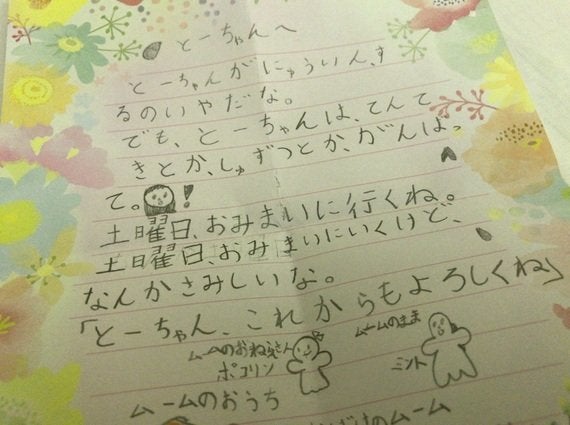 とーちゃんへ
とーちゃんがにゅういん、す
るのいやだな。
でも、とーちゃんは、てんて
きとか、しゅずつとか、がんばっ
て。!
土曜日、おみまいに行くね。
土曜日、おみまいにいくけど、
なんかさみしいな。
「とーちゃん、これからもよろしくね」
ムームのおねえさん
ポコリン
ムームのまま
ミント
ムームのおうち
のムーム